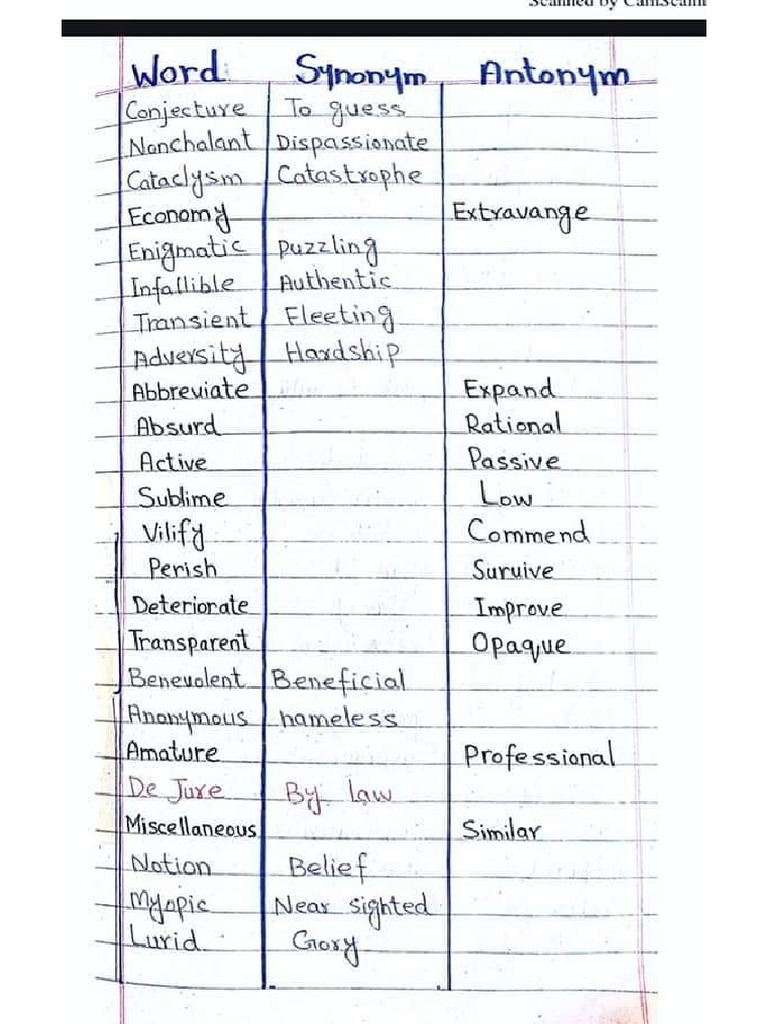 Scanned by CamScann
Word Synonym Antonym
Conjecture To guess
Nonchalant Dispassionate
Cataclysm Catastrophe
Economy Extravange
Enigmatic puzzling
Infallible Authentic
Transient Fleeting
Adversity Hardship
Abbreviate Expand
Absurd Rational
Active Passive
Sublime Low
Vilify Commend
Perish Survive
Deteriorate Improve
Transparent Opaque
Benevolent Beneficial
Anonymous nameless
Amature Professional
De Jure By law
Miscellaneous Similar
Notion Belief
Myopic Near sighted
Lurid Gory